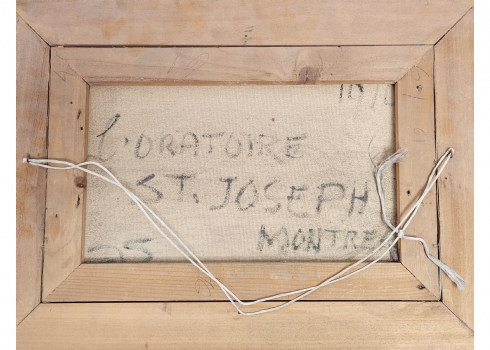 L'ORATOIRE
ST. JOSEPH
MONTRE